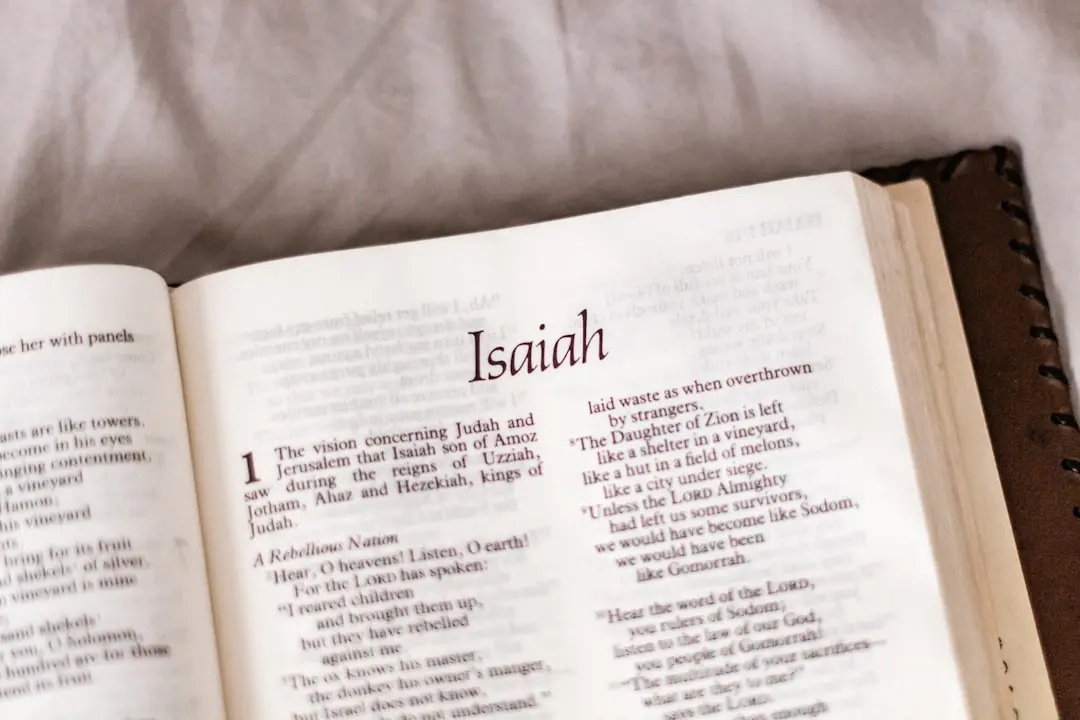 ose her with panels
asts are like towers.
ecome in his eyes
nging contentment.
a vineyard
Hamon;
his vineyard
bring for its fruit
shekels of silver.
vineyard is mine
shekels
you, O
hundred are for those
tend its fruit.
Isaiah
1 The vision concerning Judah and
Jerusalem that Isaiah son of Amoz
saw during the reigns of Uzziah,
Jotham, Ahaz and Hezekiah, kings of
Judah.
A Rebellious Nation
2Hear, O heavens! Listen, O earth!
For the LORD has spoken:
“I reared children
and brought them up,
but they have rebelled
against me.
3The ox knows his master,
the donkey his owner's manger,
but Israel does not know,
do not understand.”
laid waste as when overthrown
by strangers.
8The Daughter of Zion is left
like a shelter in a vineyard,
like a hut in a field of melons,
like a city under siege.
9Unless the LORD Almighty
had left us some survivors,
we would have become like Sodom,
we would have been
like Gomorrah.
10Hear the word of the LORD,
you rulers of Sodom;
listen to the law of our God,
you people of Gomorrah!
11“The multitude of your sacrifices—
what are they to me?”
says the LORD.
than enough